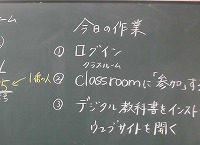 今日の作業
① ログイン
クラスルーム
② Classroomに「参加」す
③ デジタル教科書をインスト
ウェブサイトを開く
ーム
1番の人